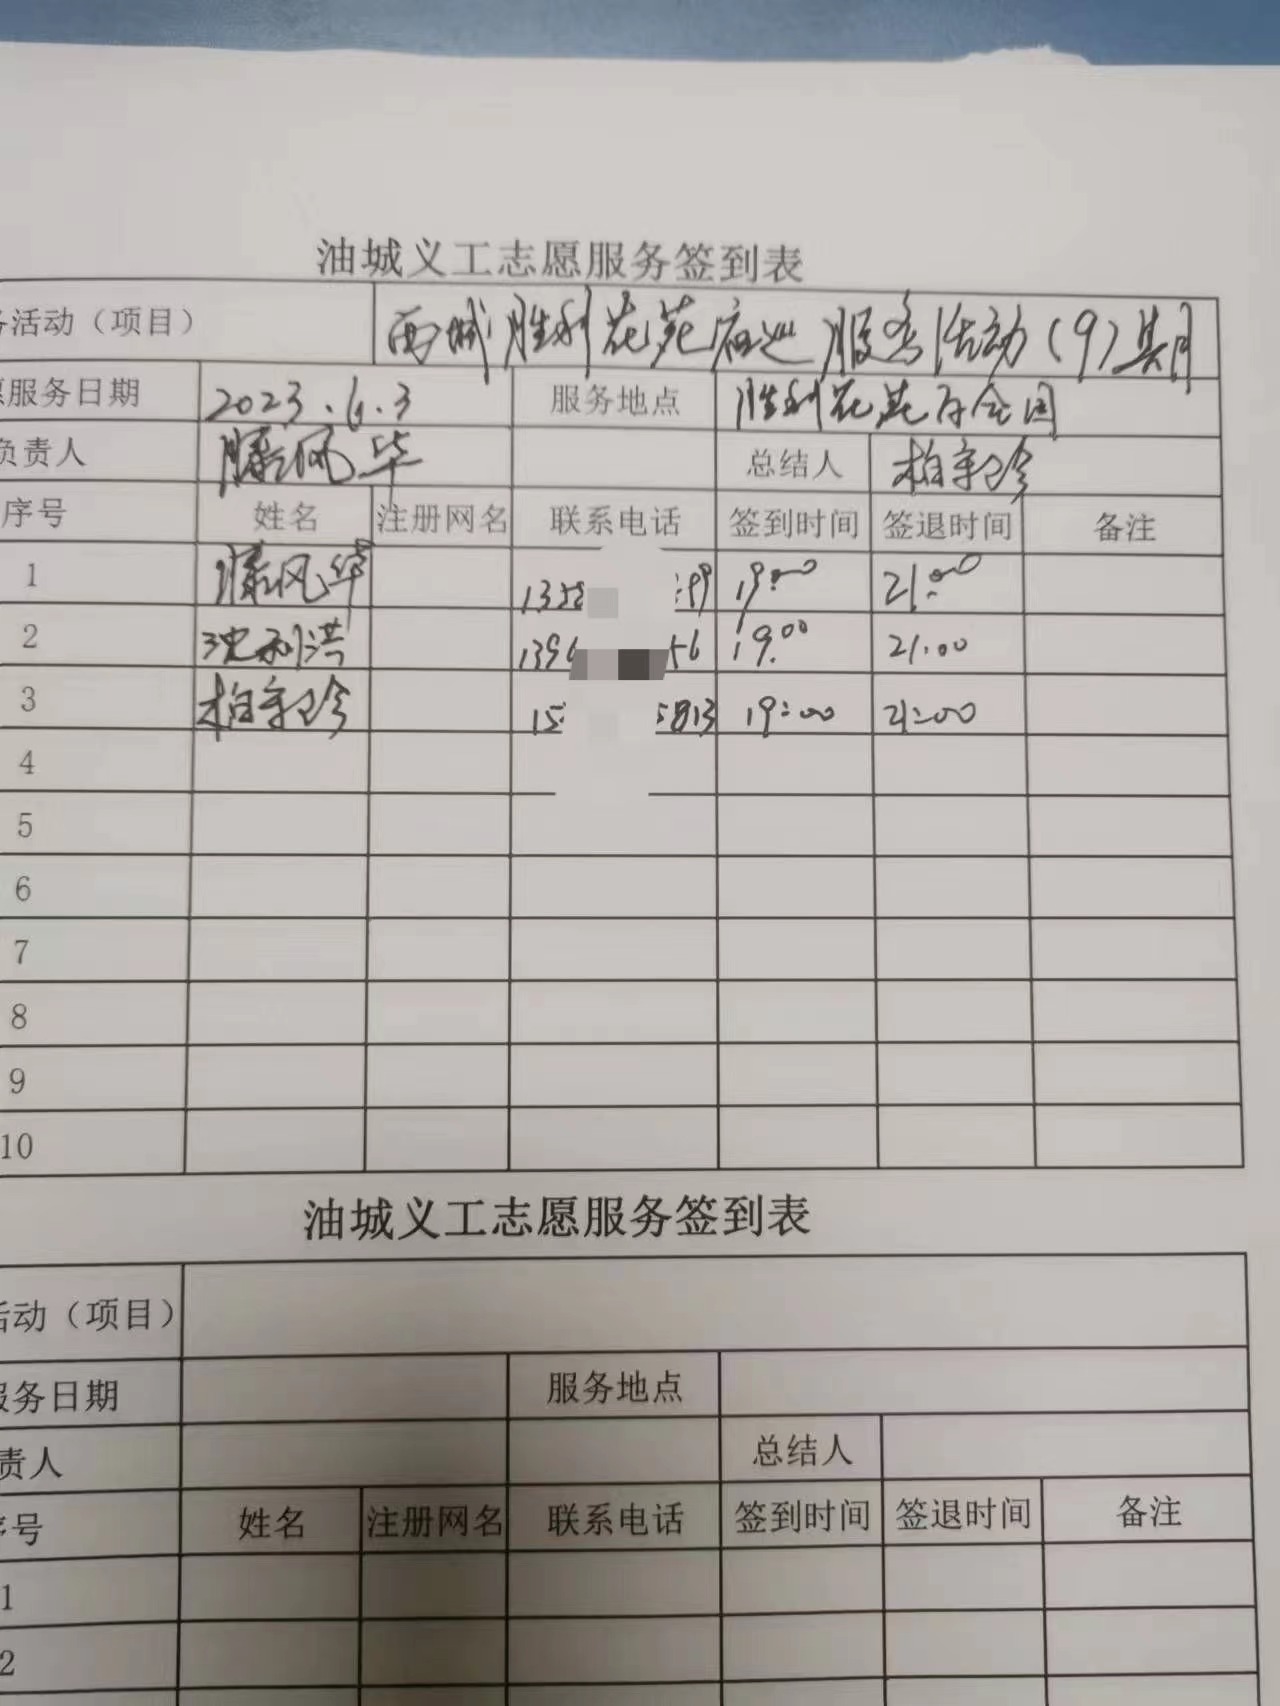 油城义工志愿服务签到表
活动（项目） 西城胜利花苑夜巡服务活动（9）期
服务日期 2023.6.3 服务地点 胜利花苑
负责人 滕风华 总结人
序号 姓名 注册网名 联系电话 签到时间 签退时间 备注
1 滕风华 135 99 19:00 21:00
2 沈利洪 139 56 19:00 21:00
3 15 5813 19:00 21:00
4
5
6
7
8
9
10
油城义工志愿服务签到表
活动（项目）
服务日期 服务地点
责人 总结人
序号 姓名 注册网名 联系电话 签到时间 签退时间 备注
1
2